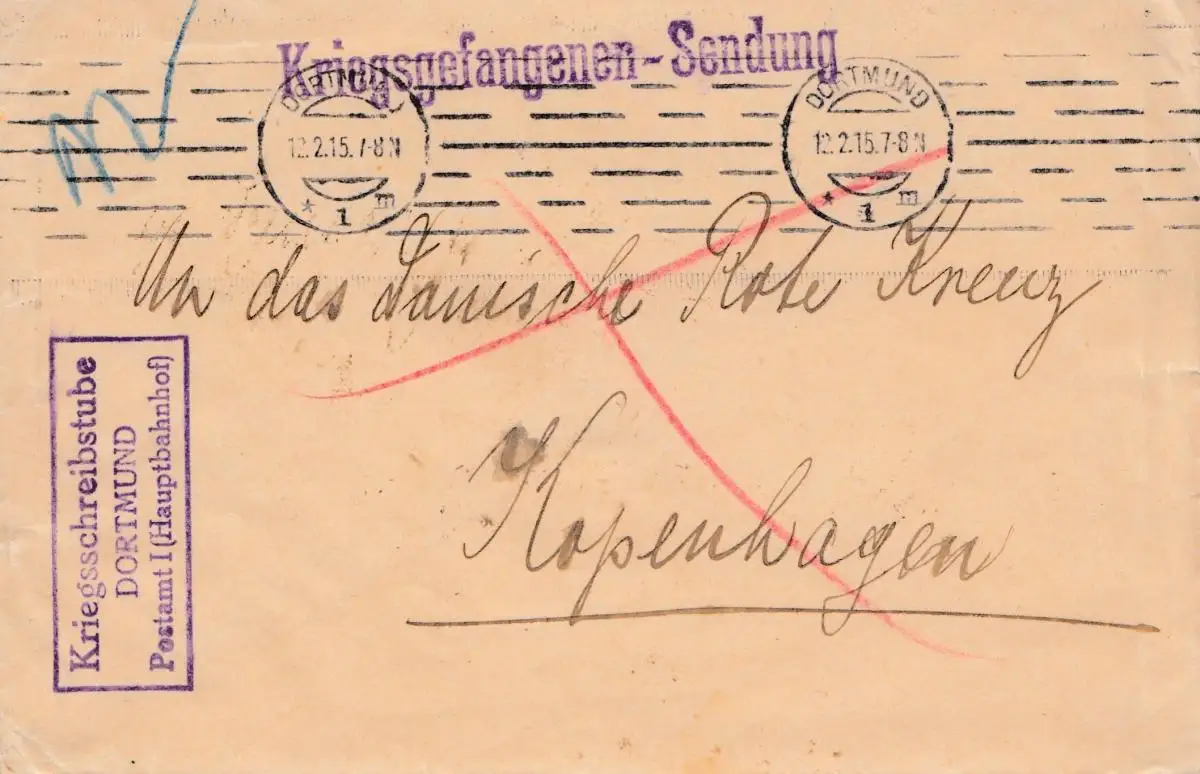 Kriegsgefangenen-Sendung
DORTMUND
12.2.15. 7-8 N
* 1 m
DORTMUND
12.2.15. 7-8 N
* 1 m
An das Dänische Rote Kreuz
Kopenhagen
Kriegsschreibstube
DORTMUND
Postamt I (Hauptbahnhof)